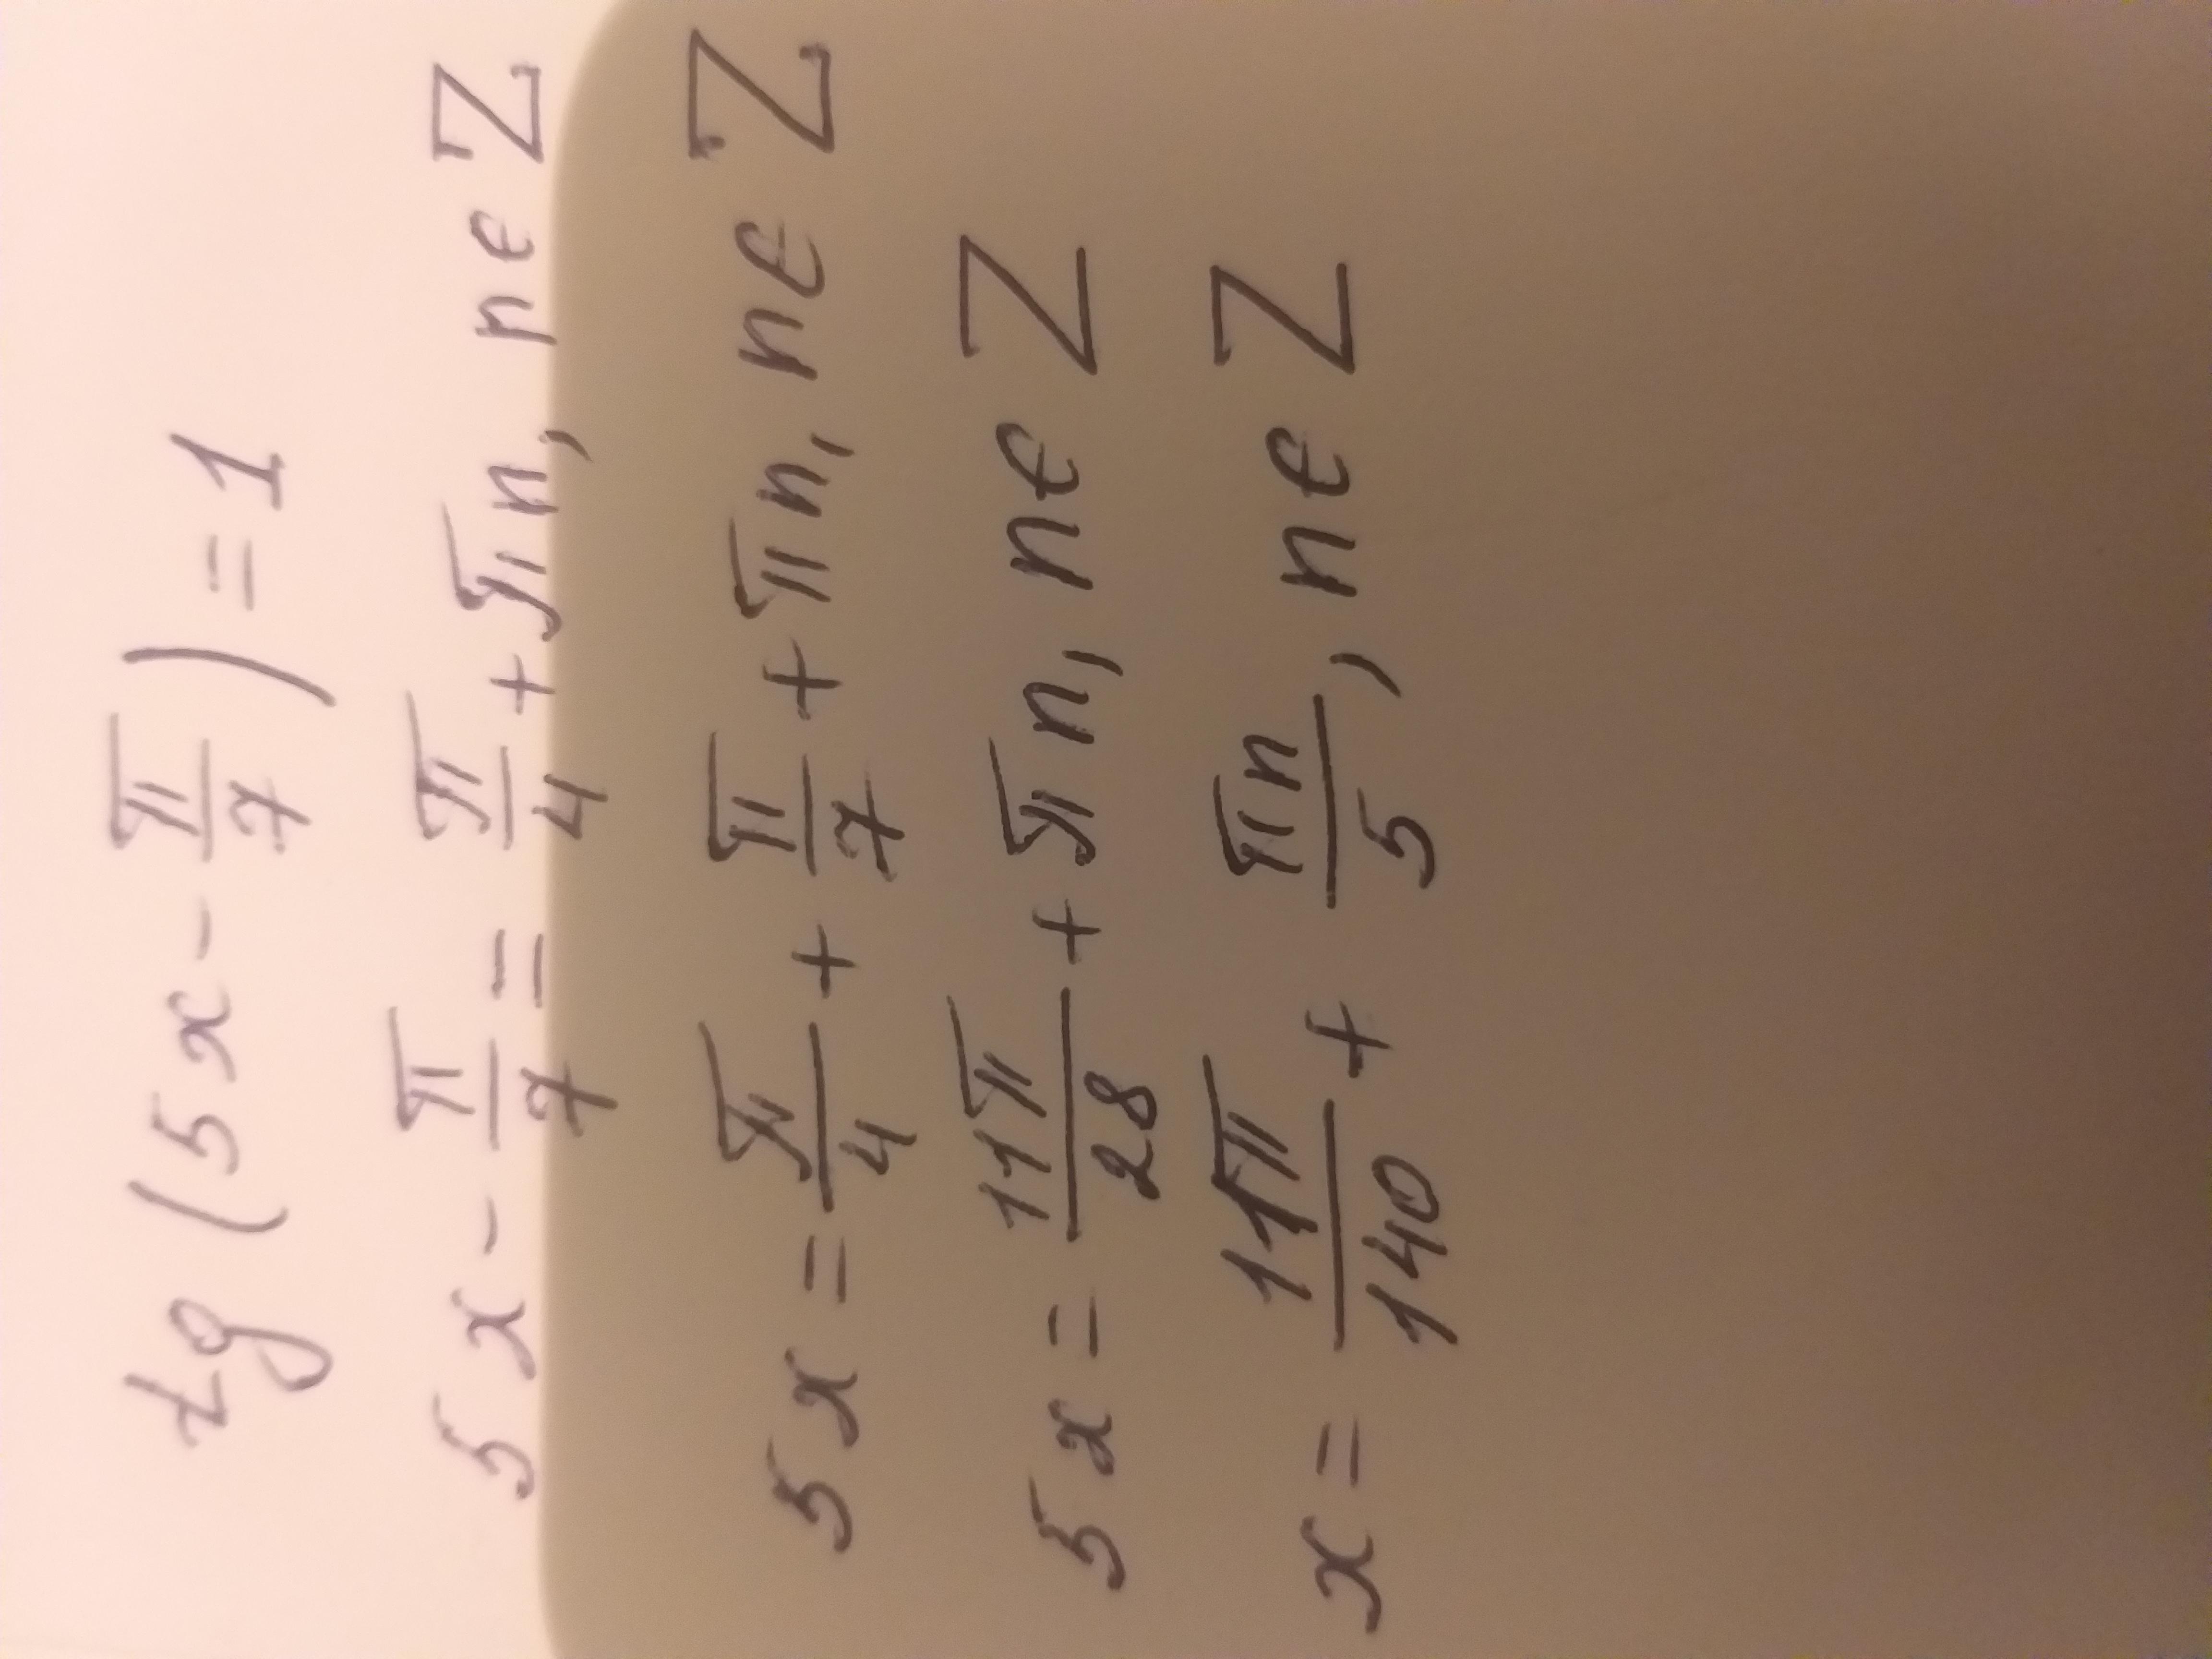 tg (5x - π/7) = 1
5x - π/7 = π/4 + πn, n∈Z
5x = π/4 + π/7 + πn, n∈Z
5x = 11π/28 + πn, n∈Z
x = 11π/140 + πn/5, n∈Z